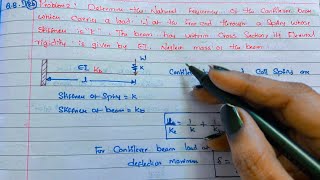 Problem 2: Determine the Natural frequency of the Cantilever beam
which carries a load W at its free end through a spring whose
stiffness is "k". The beam has uniform Cross section, its flexural
rigidity is given by EI. Neglect mass of the beam
W
EI Kb
K
l
Coil Spring are
Stiffness of Spring = K
Stiffness of beam = Kb
1/Ke = 1/K + 1/
For Cantilever beam load at
deflection maximum
δ =